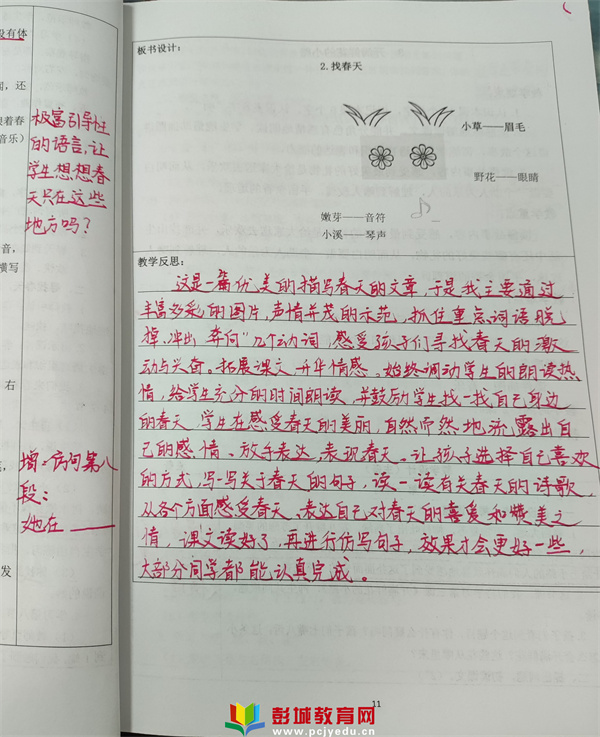 没有体
，还
着春
音乐）
极富引导性
的语言，让
学生想想春
天只在这些
地方吗？
音，
横写
右
增：仿句第八
段：
她在
发
板书设计：
2.找春天
小草——眉毛
野花——眼睛
嫩芽——音符
小溪——琴声
教学反思：
这是一篇优美的描写春天的文章，于是我主要通过
丰富多彩的图片，声情并茂的示范，抓住重点词语脱
掉、冲出、奔向”几个动词，感受孩子们寻找春天的激
动与兴奋。拓展课文，升华情感。始终调动学生的朗读热
情，给学生充分的时间朗读，并鼓励学生找一找自己身边
的春天，学生在感受春天的美丽，自然而然地流露出自
己的感情。放手表达，表现春天。让孩子选择自己喜欢
的方式，写一写关于春天的句子，读一读有关春天的诗歌，
从各个方面感受春天、表达自己对春天的喜爱和赞美之
情，课文读好了，再进行仿写句子，效果才会更好一些，
大部分同学都能认真完成。
11
彭城教育网
www.pcjyedu.cn